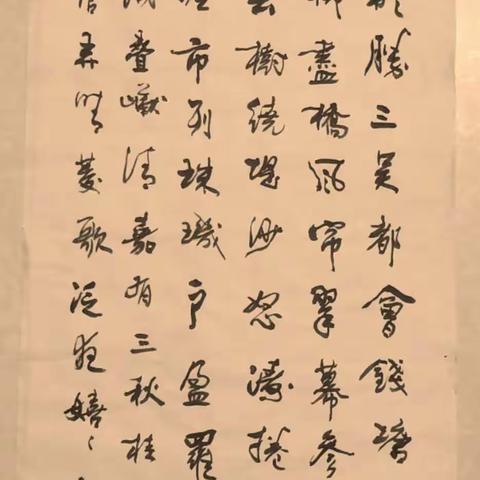 勝三吳都會錢塘
畫橋風帘翠幕參
樹繞堤沙怒濤捲
市列珠璣戶盈羅
疊巘清嘉有三秋桂
管弄晴菱歌泛夜嬉〻